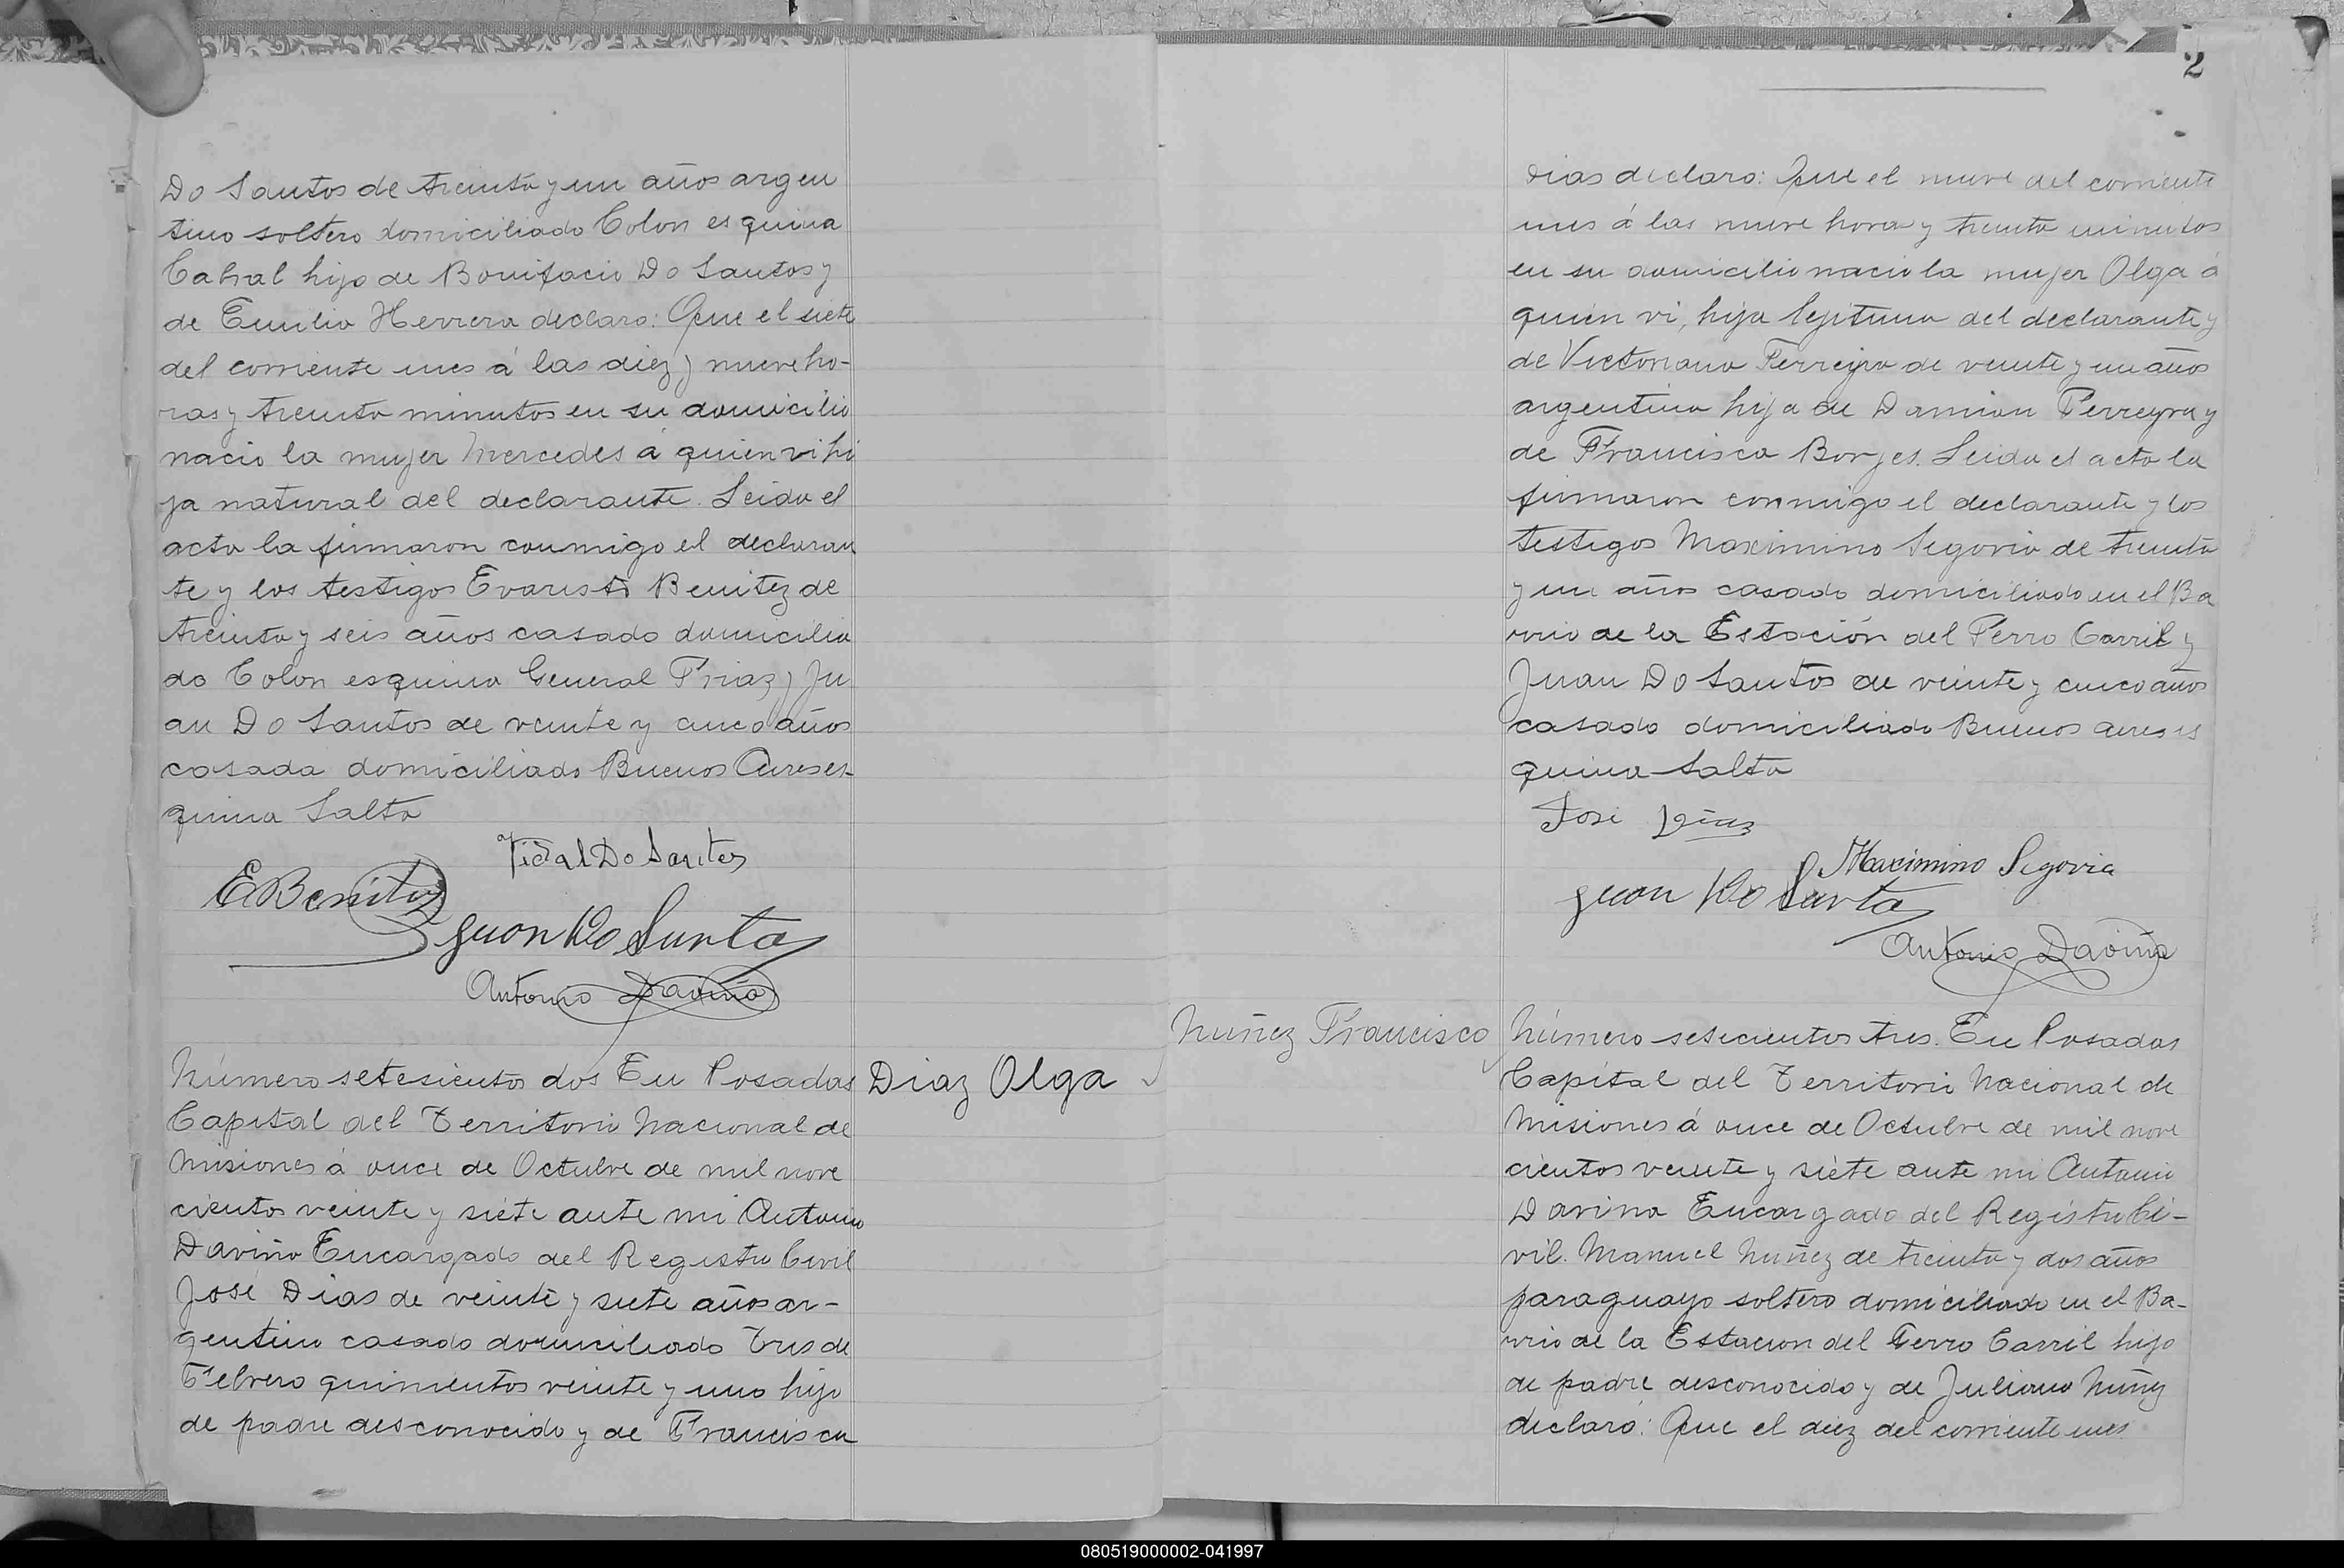 Do Santos de treinta y un años argen
tino soltero domiciliado Colon esquina
Cabral hijo de Bonifacio Do Santos y
de Emilia Herrera declaro: Que el siete
del corriente mes á las diez y nueve ho-
ras y treinta minutos en su domicilio
nacio la mujer Mercedes á quien vi hi
ja natural del declarante. Leida el
acta la firmaron conmigo el declaran
te y los testigos Evaristo Benitez de
treinta y seis años casado domicilia
do Colon esquina General Friaz y Ju
an Do Santos de veinte y cinco años
casada domiciliado Buenos Aires es-
quina Salta
Vidal Do Santos
EBenitez
Juan Do Santos
Antonio Daviña
Número setesientos dos En Posadas
Diaz Olga
Capital del Territorio Nacional de
Misiones á once de Octubre de mil nove
cientos veinte y siete ante mi Antonio
Daviña Encargado del Registro Civil
José Dias de veinte y siete años ar-
gentino casado domiciliado Tres de
Febrero quinientos veinte y uno hijo
de padre desconocido y de Francisca
2
Dias declaro: Que el nueve del corriente
mes á las nueve hora y treinta minutos
en su domicilio nacio la mujer Olga á
quien vi, hija lejitima del declarante y
de Victoriana Ferreyra de veinte y un años
argentina hija de Damian Ferreyra y
de Francisca Borjes. Leida el acta la
firmaron conmigo el declarante y los
testigos Maximino Segovia de treinta
y un años casado domiciliado en el Ba
rrio de la Estación del Ferro Carril y
Juan Do Santos de veinte y cinco años
casado domiciliado Buenos aires es
quina Salta
Jose Diaz
Maximino Segovia
Juan Do Santos
Antonio Daviña
Nuñez Francisco
Número setecientos tres. En Posadas
Capital del Territorio Nacional de
Misiones á once de Octubre de mil nove
cientos veinte y siete ante mi Antonio
Davina Encargado del Registro Ci-
vil. Manuel Nuñez de treinta y dos años
paraguayo soltero domiciliado en el Ba-
rrio de la Estacion del Ferro Carril hijo
de padre desconocido y de Juliana Nuñez
declaró: Que el diez del corriente mes
080519000002-041997